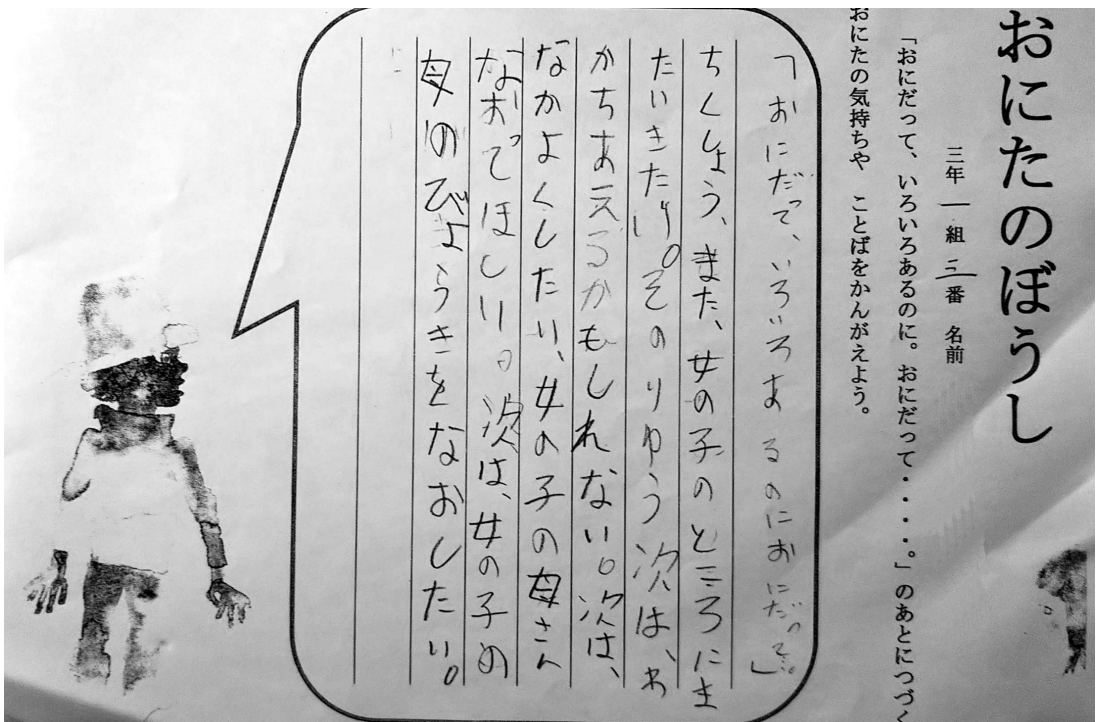 おにたのぼうし
三年 一 組 三 番 名前
「おにだって、いろいろあるのに。おにだって・・・・・。」のあとにつづく
おにたの気持ちや ことばをかんがえよう。
「おにだって、いろいろあるのにおにだって。」
ちくしょう、また、女の子のところにま
たいきたい。そのりゆう次は、わ
かちあえるかもしれない。次は、
なかよくしたい、女の子の母さん
なおってほしい。次は、女の子の
母のびょうきをなおしたい。